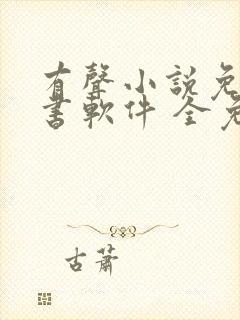 有聲小說免
書軟件 全免
古蕭